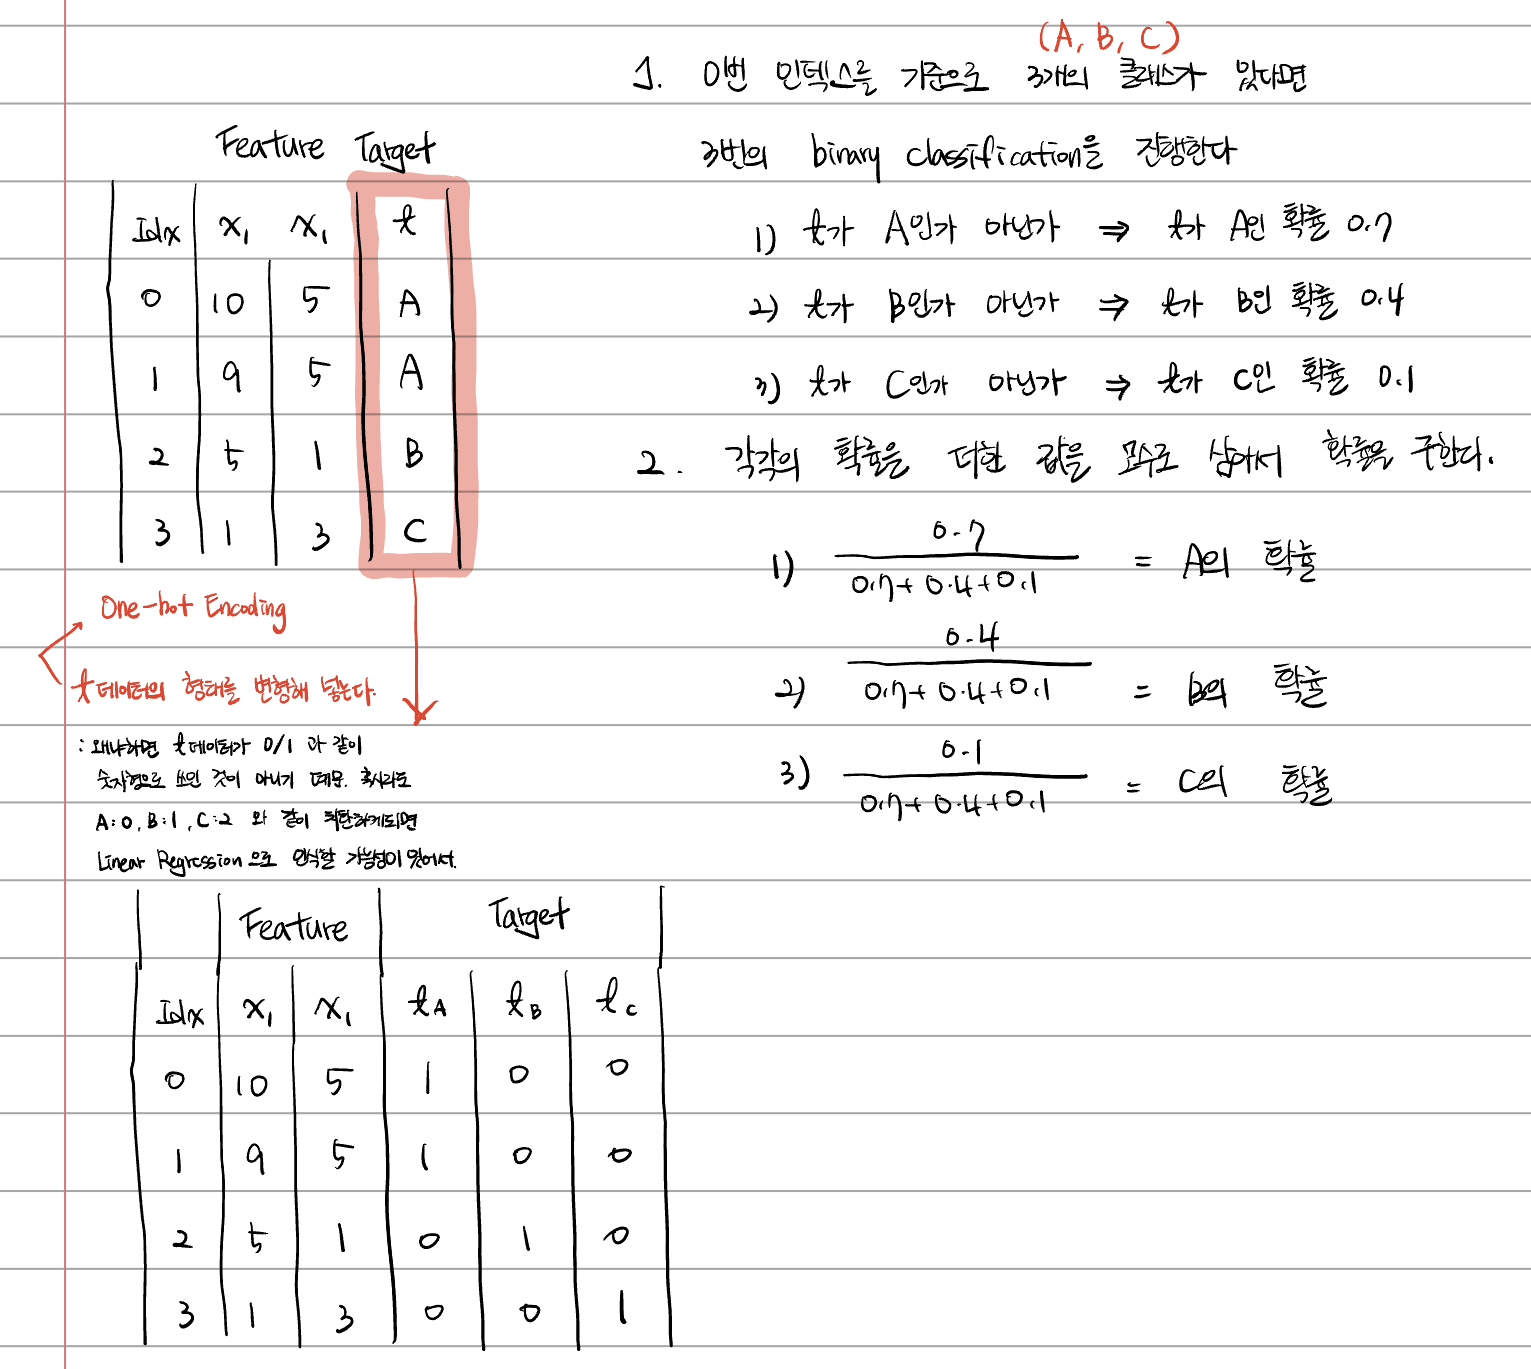 Feature Target
Idx x₁ x₁ t
0 10 5 A
1 9 5 A
2 5 1 B
3 1 3 C
One-hot Encoding
t데이터의 형태를 변형해 넣는다.
: 왜냐하면 t데이터가 0/1 과 같이
숫자형으로 쓰인 것이 아니기 때문. 혹시라도
A:0, B:1, C:2 와 같이 치환하게되면
Linear Regression으로 인식할 가능성이 있어서.
Feature Target
Idx x₁ x₁ t_A t_B t_C
0 10 5 1 0 0
1 9 5 1 0 0
2 5 1 0 1 0
3 1 3 0 0 1
(A, B, C)
1. 0번 인덱스를 기준으로 3개의 클래스가 있다면
3번의 binary classification을 진행한다
1) t가 A인가 아닌가 ⇒ t가 A인 확률 0.7
2) t가 B인가 아닌가 ⇒ t가 B인 확률 0.4
3) t가 C인가 아닌가 ⇒ t가 C인 확률 0.1
2. 각각의 확률을 더한 값을 모수로 삼아서 확률을 구한다.
0.7
1) 0.7+0.4+0.1 = A의 확률
0.4
2) 0.7+0.4+0.1 = B의 확률
0.1
3) 0.7+0.4+0.1 = C의 확률